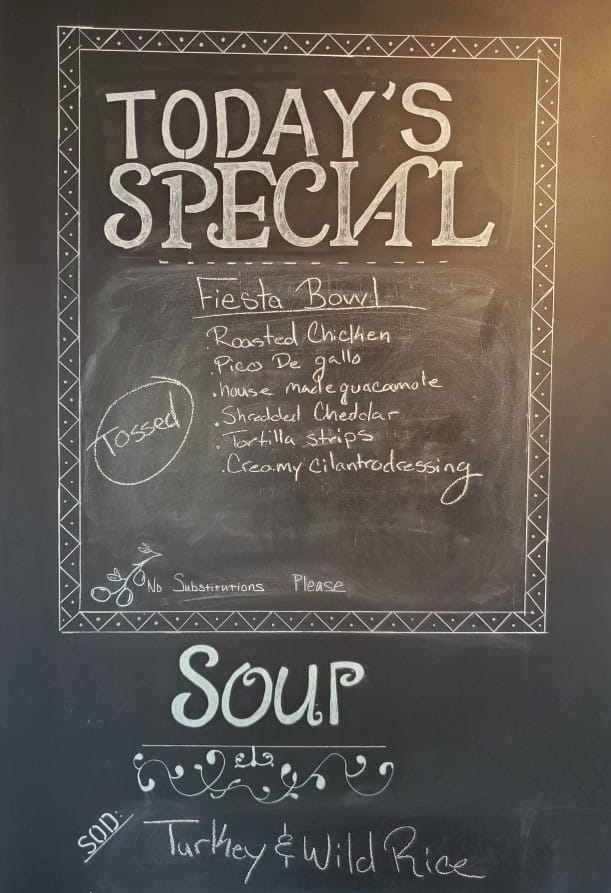 TODAY'S
SPECIAL
Fiesta Bowl
.Roasted Chicken
.Pico De gallo
.house made guacamole
.Shredded Cheddar
.Tortilla strips
.Creamy cilantro dressing
Tossed
No Substitutions Please
SOUP
etc.
SOD:
Turkey & Wild Rice